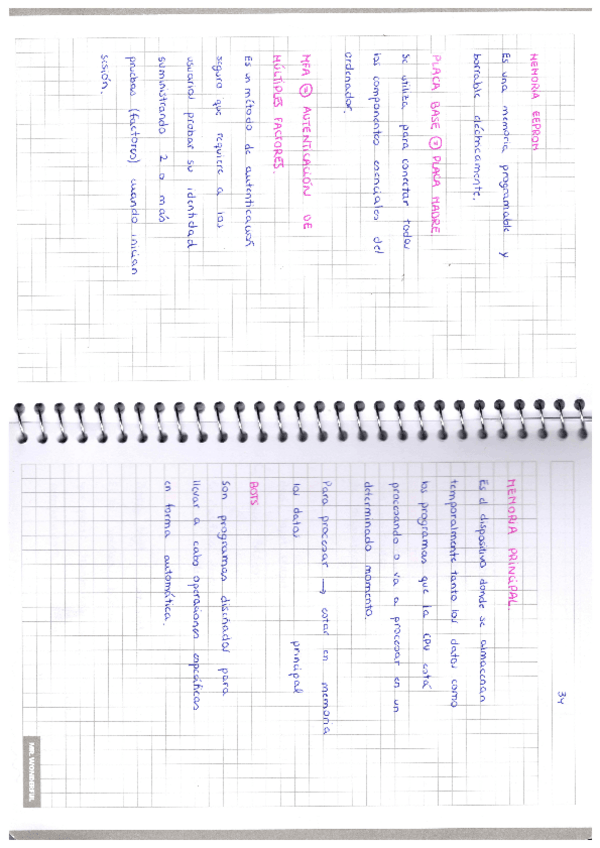 MEMORIA EEPROM
Es una memoria programable y
borrable eléctricamente.
PLACA BASE ② PLACA MADRE
Se utiliza para conectar todos
los componentes esenciales del
ordenador.
MFA ② AUTENTICACIÓN DE
MÚLTIPLES FACTORES.
Es un método de autenticación
seguro que requiere a los
usuarios probar su identidad
suministrando 2 o más
pruebas (factores) cuando inician
sesión.
34
MEMORIA PRINCIPAL.
Es el dispositivo donde se almacenan
temporalmente tanto los datos como
los programas que la CPU está
procesando o va a procesar en un
determinado momento.
Para procesar → estar en memoria
los datos principal
BOTS
Son programas diseñados para
llevar a cabo operaciones específicas
en forma automática.
MR. WONDERFUL